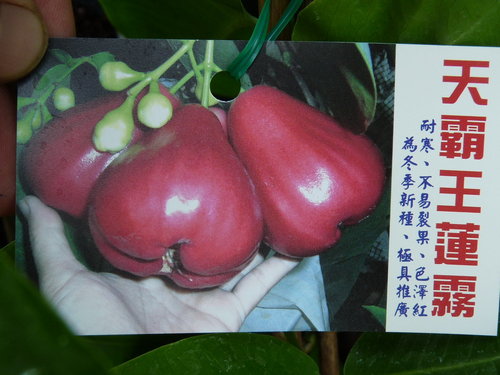 天霸王蓮霧
耐寒、不易裂果、色澤紅
為冬季新種、極具推廣